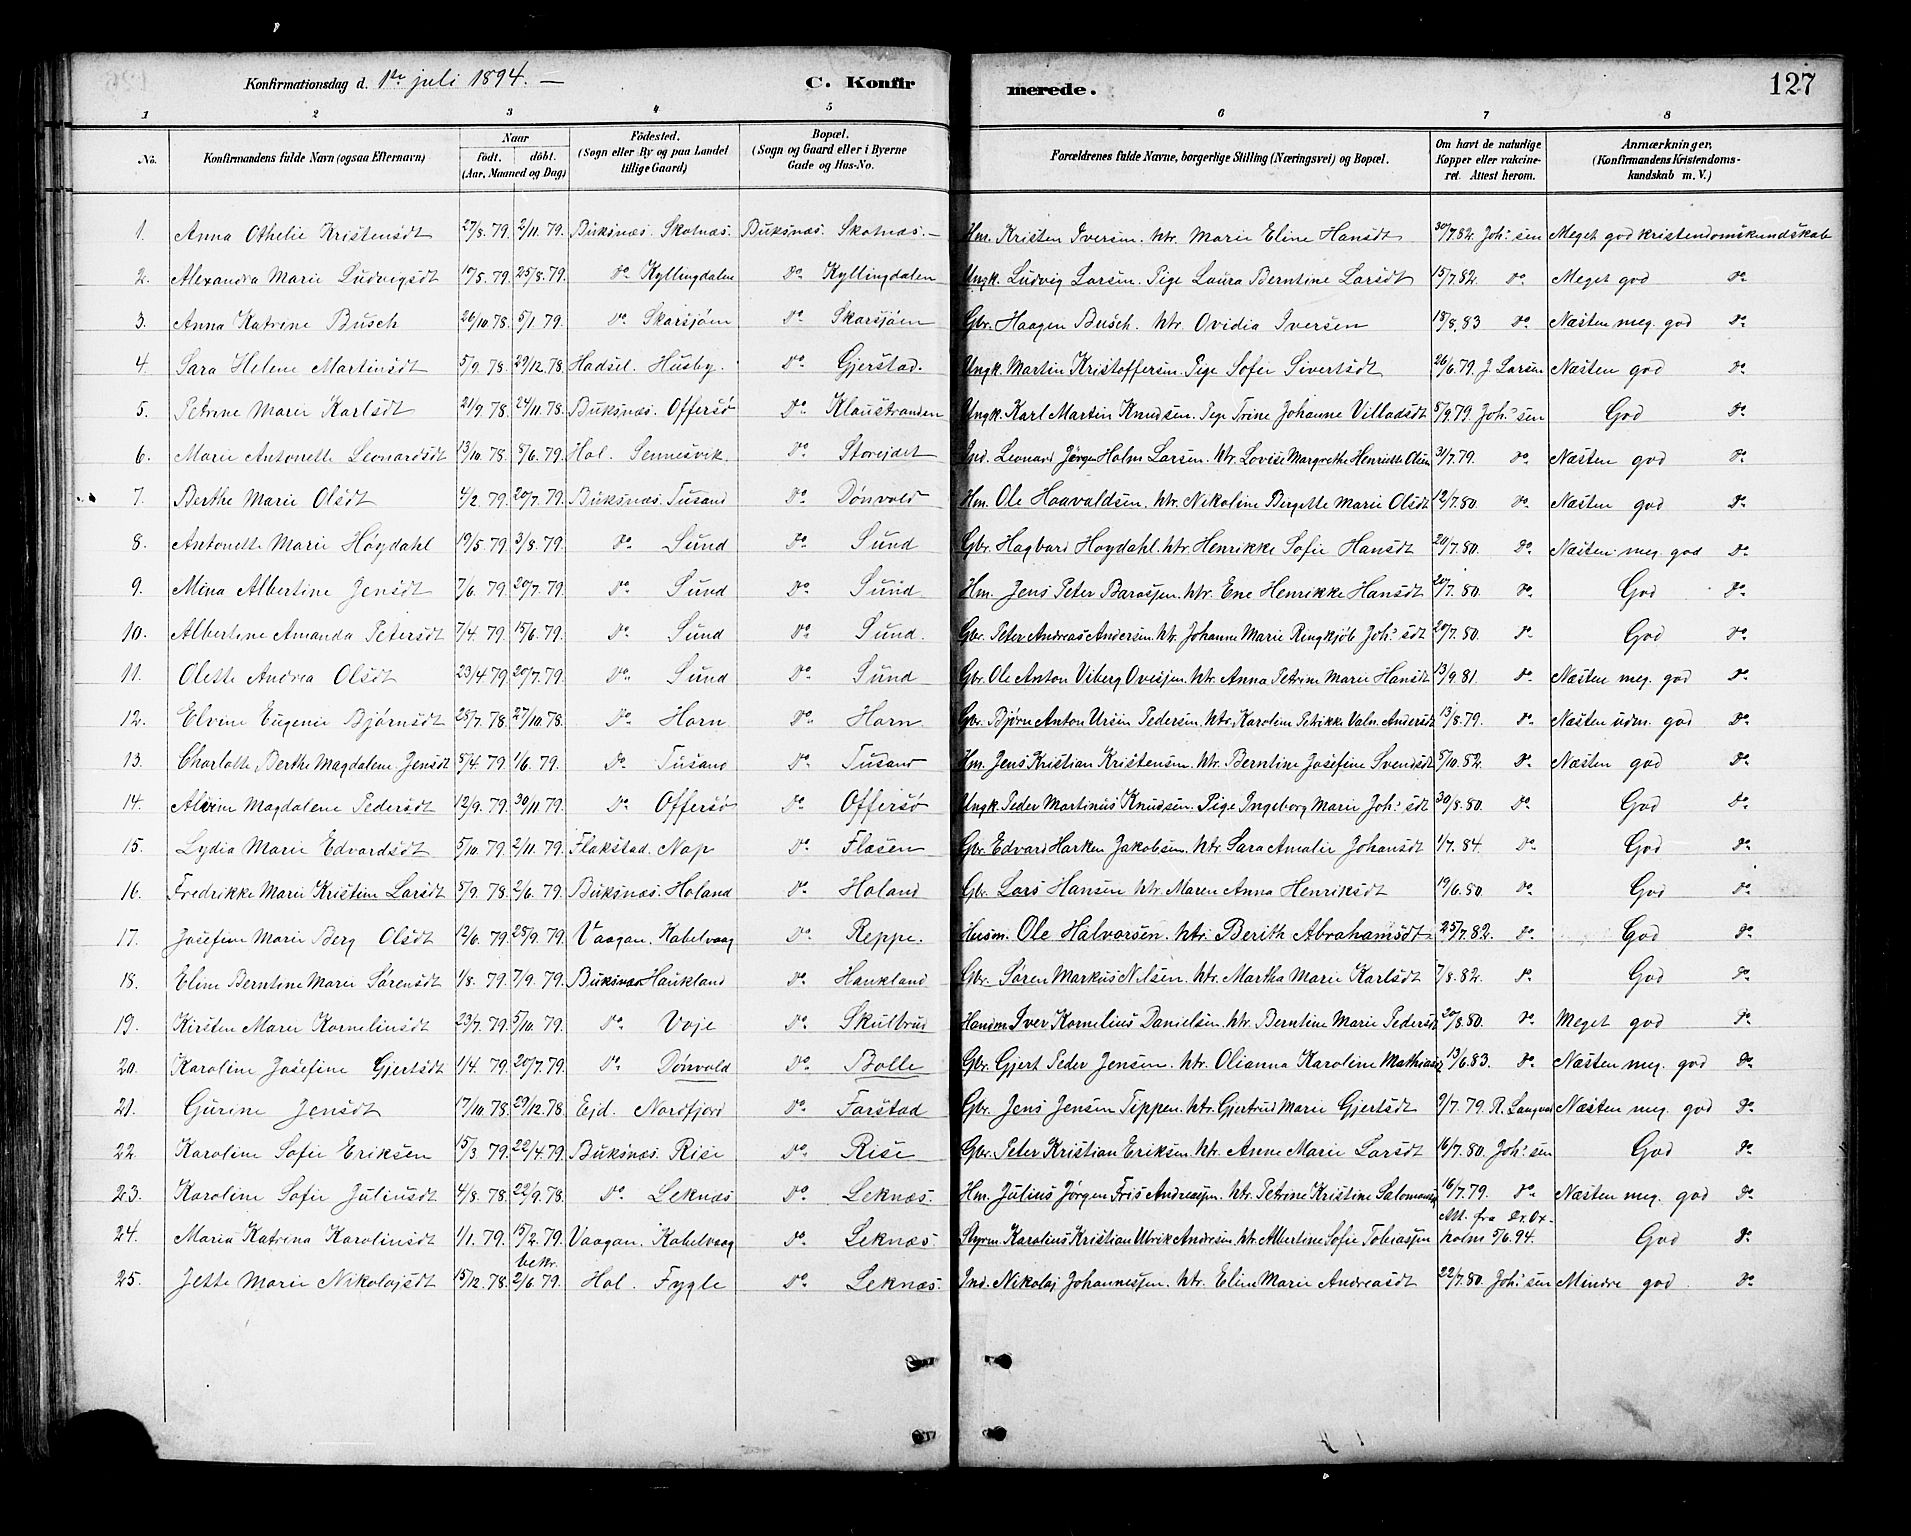 Konfirmationsdag d. 1ste juli 1894. —
C. Konfirmerede.
127
1 2 3 4 5 6 7 8
No. Konfirmandens fulde Navn (ogsaa Efternavn) Naar født. døbt. (Aar, Maaned og Dag) Födested. (Sogn eller By og paa Landet tillige Gaard) Bopæl. (Sogn og Gaard eller i Byerne Gade og Hus-No. Forældrenes fulde Navne, borgerlige Stilling (Næringsvei) og Bopæl. Om havt de naturlige Kopper eller vakcineret. Attest herom. Anmærkninger, (Konfirmandens Kristendomskundskab m. V.)
1. Anna Othelie Kristensdt 27/8. 79. 2/11. 79. Buksnæs. Skotnæs. Buksnæs. Skotnæs. — Hm. Kristen Iversen. htr. Marie Eline Hansdt 30/7.82. Joh: sen Meget god kristendomskundskab
2. Alexandra Marie Ludvigsdt 17/5. 79. 25/8. 79. do Kyllingdalen do Kyllingdalen Ungk. Ludvig Larsen. Pige Laura Berntine Larsdt 15/7.82. do Meget god do
3. Anna Katrine Busch 26/10. 78. 5/1. 79. do Skarsjøen do Skarsjøen Gbr. Haagen Busch. htr. Ovidia Iversen 18/8.83 do Næsten meg. god do
4. Sara Helene Martinsdt 5/9. 78. 29/12. 78. Hadsel. Husby. do Gjerstad. Ungk. Martin Kristoffersen. Pige Sofie Sivertsdt 26/6.79. J Larsen Næsten god do
5. Petrine Marie Karlsdt 21/9. 78. 24/11. 78. Buksnæs. Offersø do Klaustranden Ungk. Karl Martin Knudsen. Pige Trine Johanne Villadsdt 5/9.79 Joh: sen God do
6. Marie Antonette Leonardsdt 13/10. 78. 8/6. 79. Hol. Sennesvik. do Storeidet Ind. Leonard Jørgen Holm Larsen. htr. Lovise Margrethe Henriette Olsen 31/7.79. do Næsten god do
7. Berthe Marie Olsdt 4/2. 79. 20/7. 79. Buksnæs. Tusand do Dønvold Hm. Ole Haavaldsen. htr. Nikoline Birgette Marie Olsdt 12/7.80. do Næsten god do
8. Antonette Marie Høydahl 19/5. 79. 3/8. 79. do Sund do Sund Gbr. Hagbard Høydahl. htr. Henrikke Sofie Hansdt 20/7.80. do Næsten meg. god do
9. Mina Albertine Jensdt 7/6. 79. 20/7. 79. do Sund do Sund Hm. Jens Peter Barassen. htr. Ene Henrikke Hansdt 20/7.80. do God do
10. Albertine Amanda Petersdt 7/4. 79. 15/6. 79. do Sund do Sund. Gbr. Peter Andreas Andersen. htr. Johanne Marie Ringkjøb Joh: sdt 20/7.80. do God do
11. Olette Andrea Olsdt 23/4 79. 20/7. 79. do Sund do Sund Gbr. Ole Anton Viberg Ovesen. htr. Anna Petrine Marie Hansdt 13/9.81. do Næsten meg. god do
12. Elvine Eugenie Bjørnsdt 28/7. 78. 27/10. 78. do Horn do Horn. Gbr. Bjørn Anton Ursin Pedersen. htr. Karoline Petrikke Andersdt 13/8.79. do Næsten udm. god do
13. Charlotte Berthe Magdalene Jensdt 5/4. 79. 1/6. 79. do Tusand do Tusand Hm. Jens Kristian Kristensen. htr. Berntine Josefine Svendsdt 5/10.82. do Næsten god do
14. Magdalene Pedersdt 12/9. 79. 30/11. 79. do Offersø do Offersø Ungk. Peder Martinus Knudsen. Pige Ingeborg Marie Joh: sdt 30/8.80. do God do
15. Lydia Marie Edvardsdt 5/10. 79. 2/11. 79. Flakstad. Nap do Flæsen Gbr. Edvard Harken Jakobsen. htr. Sara Amalie Johansdt 1/7.84. do God do
16. Fredrikke Marie Kristine Larsdt 5/9. 78. 2/6. 79. Buksnæs. Holand do Holand Gbr. Lars Hansen htr. Maren Anna Henriksdt 19/6.80. do God do
17. Josefine Marie Berg Olsdt 12/6. 79. 28/9. 79. Vaagan. Kabelvaag do Reppe. Husm. Ole Halvorsen. htr. Berith Abrahamsdt 25/7.82. do God do
18. Eline Berntine Marie Sørensdt 1/8. 79. 7/9. 79. Buksnæs. Haukland do Haukland Gbr. Søren Markus Nilsen. htr. Martha Marie Karlsdt 7/8.82. do God do
19. Kirsten Marie Kornelinsdt 23/7. 79. 5/10. 79. do Voje do Skulbrud Handm. Iver Kornelius Danielsen. htr. Berntine Marie Pedersdt 20/8.80. do Meget god do
20. Karoline Josefine Gjertsdt 1/4. 79. 20/7. 79. do Dønvold do Bolle Gbr. Gjert Peder Jensen. htr. Olianna Karoline Mathiasd 13/6.83. do Næsten meg. god do
21. Gurine Jensdt 17/10. 78. 29/12. 78. Ejd. Nordfjord do Farstad Gbr. Jens Jensen Tippen. htr. Gjertrud Marie Gjertsdt 9/7.79. Næsten meg. god do
22. Karoline Sofie Eriksen 15/3 79. 22/4. 79. Buksnæs. Rise do Rise Gbr. Peter Kristian Eriksen. htr. Anne Marie Larsdt 16/7.80. Joh: sen God do
23. Karoline Sofie Juliusdt 4/8. 78. 22/9. 78. do Leknæs do Leknæs. Hm. Julius Jørgen Fris Andreassen. htr. Petrine Kristine Salomonsd 16/7.79. do Næsten meg. god do
24. Maria Katrina Karolinsdt 1/1. 79. 15/2. 79. Vaagan. Kabelvaag do Leknæs. Styrm. Karolius Kristian Ulrik Andresen. htr. Albertine Sofie Tobiassen Att. fra Dr. Oxholm 5/6.94. God do
25. Jette Marie Nikolajsdt 15/12. 78. bekr. 2/6 79. Hol. Fygle do Leknæs. Ind. Nikolaj Johannessen. htr. Eline Marie Andreasdt 22/7.80. Joh: sen Mindre god do